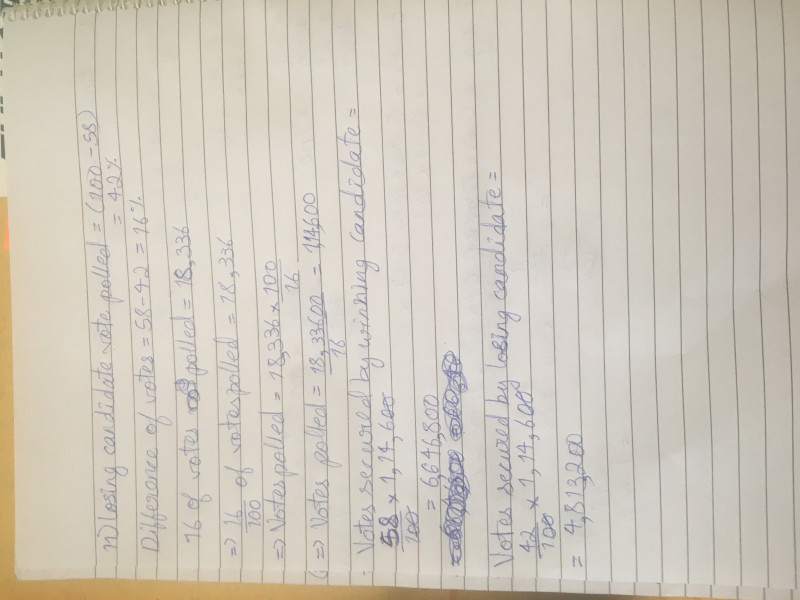 11) Losing candidate vote polled = (100 - 58)
= 42%
Difference of votes = 58-42 = 16%
16 of votes polled = 18,336
=> 16/100 of votes polled = 18,336
=> Votes polled = 18,336 x 100/16
=> Votes polled = 18,33600/16 = 1,14,600
Votes secured by winning candidate =
58/100 x 1,14,600
= 6646,800
Votes secured by losing candidate =
42/100 x 1,14,600
= 4,813,200